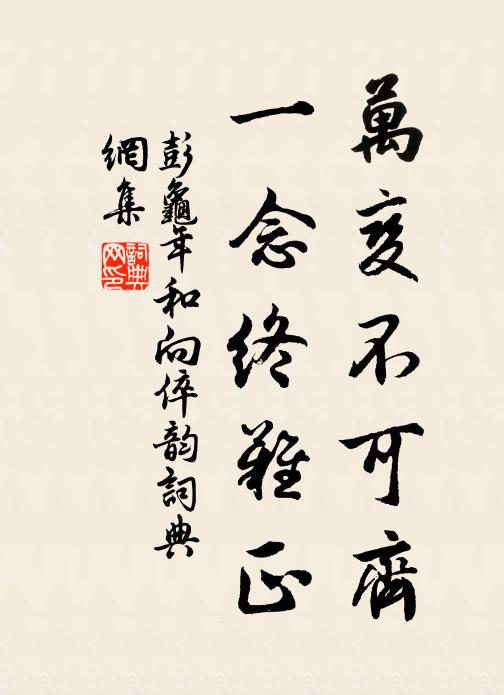 萬變不可齊
一念終難正
彭龜年和向倅韵詞典
網集
詞典網印